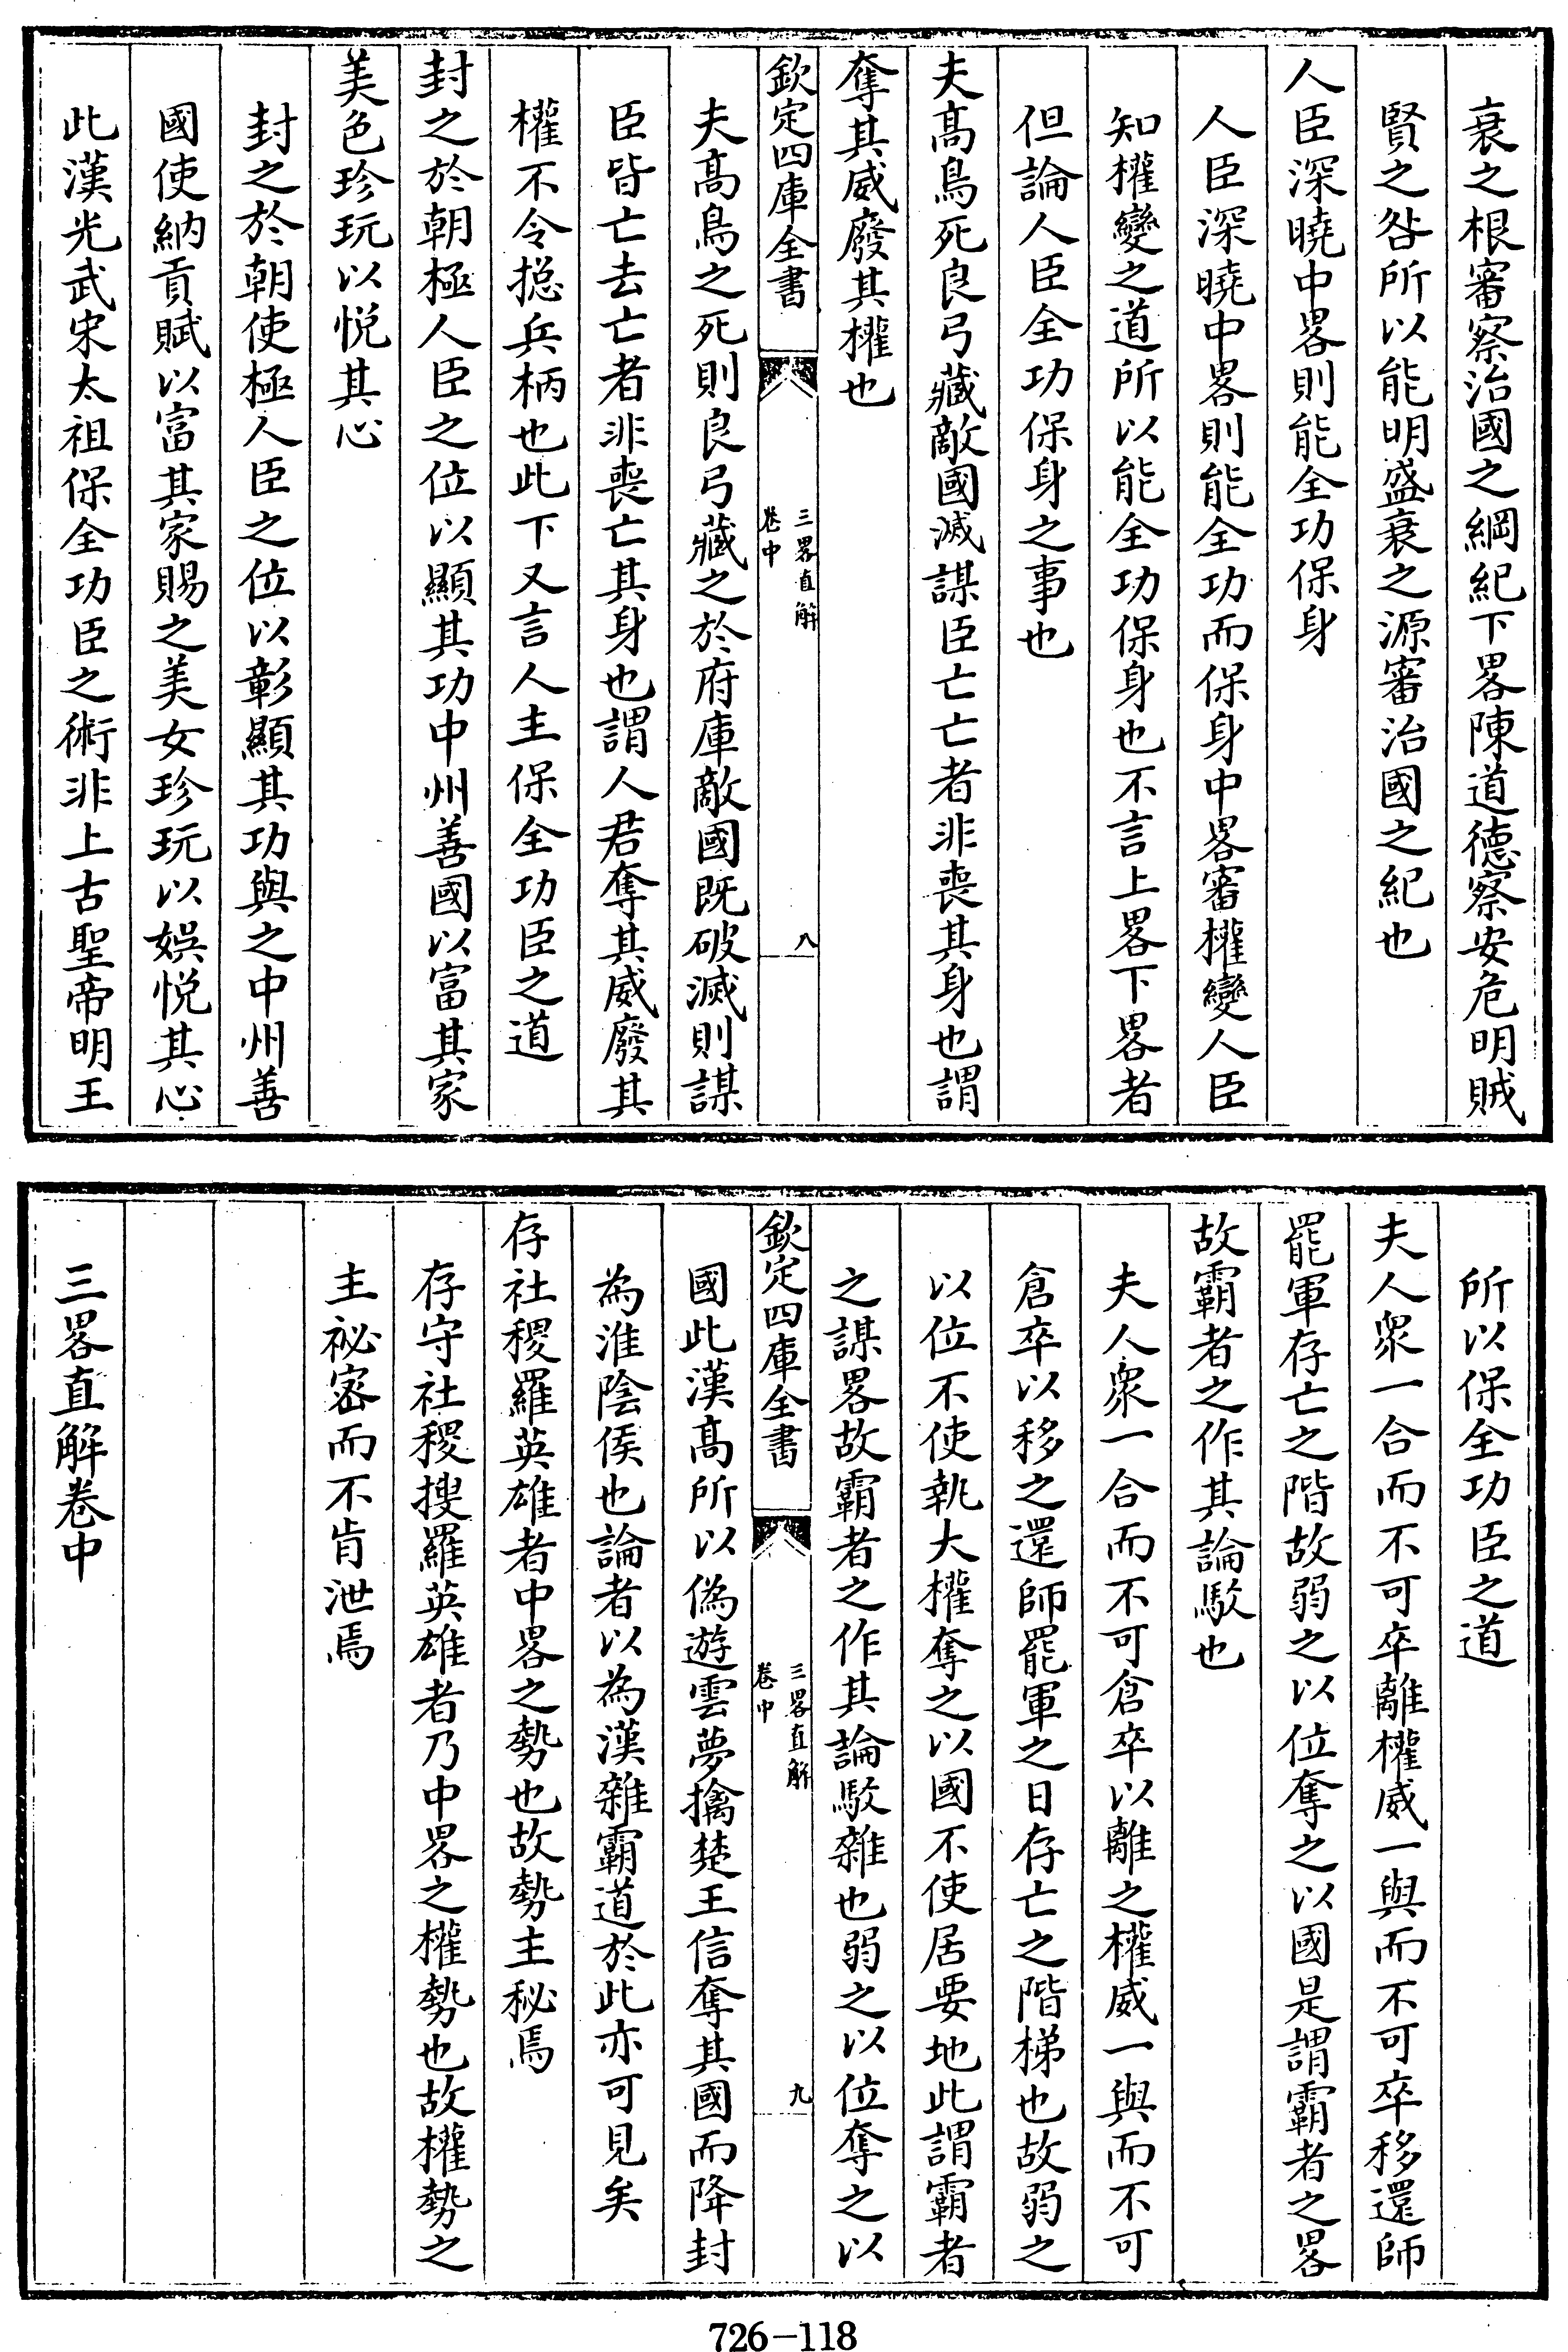 衰之根審察治國之綱紀下畧陳道德察安危明賊
賢之咎所以能明盛衰之源審治國之紀也
人臣深曉中畧則能全功保身
人臣深曉中畧則能全功而保身中畧審權變人臣
知權變之道所以能全功保身也不言上畧下畧者
但論人臣全功保身之事也
夫髙鳥死良弓藏敵國滅謀臣亡亡者非喪其身也謂
奪其威廢其權也
欽定四庫全書
三畧直解
卷中
八
夫髙鳥之死則良弓藏之於府庫敵國既破滅則謀
臣皆亡去亡者非喪亡其身也謂人君奪其威廢其
權不令摠兵柄也此下又言人主保全功臣之道
封之於朝極人臣之位以顯其功中州善國以富其家
美色珍玩以悅其心
封之於朝使極人臣之位以彰顯其功與之中州善
國使納貢賦以富其家賜之美女珍玩以娛悅其心
此漢光武宋太祖保全功臣之術非上古聖帝明王
所以保全功臣之道
夫人衆一合而不可卒離權威一與而不可卒移還師
罷軍存亡之階故弱之以位奪之以國是謂霸者之畧
故霸者之作其論駁也
夫人衆一合而不可倉卒以離之權威一與而不可
倉卒以移之還師罷軍之日存亡之階梯也故弱之
以位不使執大權奪之以國不使居要地此謂霸者
之謀畧故霸者之作其論駁雜也弱之以位奪之以
欽定四庫全書
三畧直解
卷中
九
國此漢髙所以偽遊雲夢擒楚王信奪其國而降封
為淮陰侯也論者以為漢雜霸道於此亦可見矣
存社稷羅英雄者中畧之勢也故勢主秘焉
存守社稷搜羅英雄者乃中畧之權勢也故權勢之
主祕密而不肯泄焉
三畧直解卷中
726-118